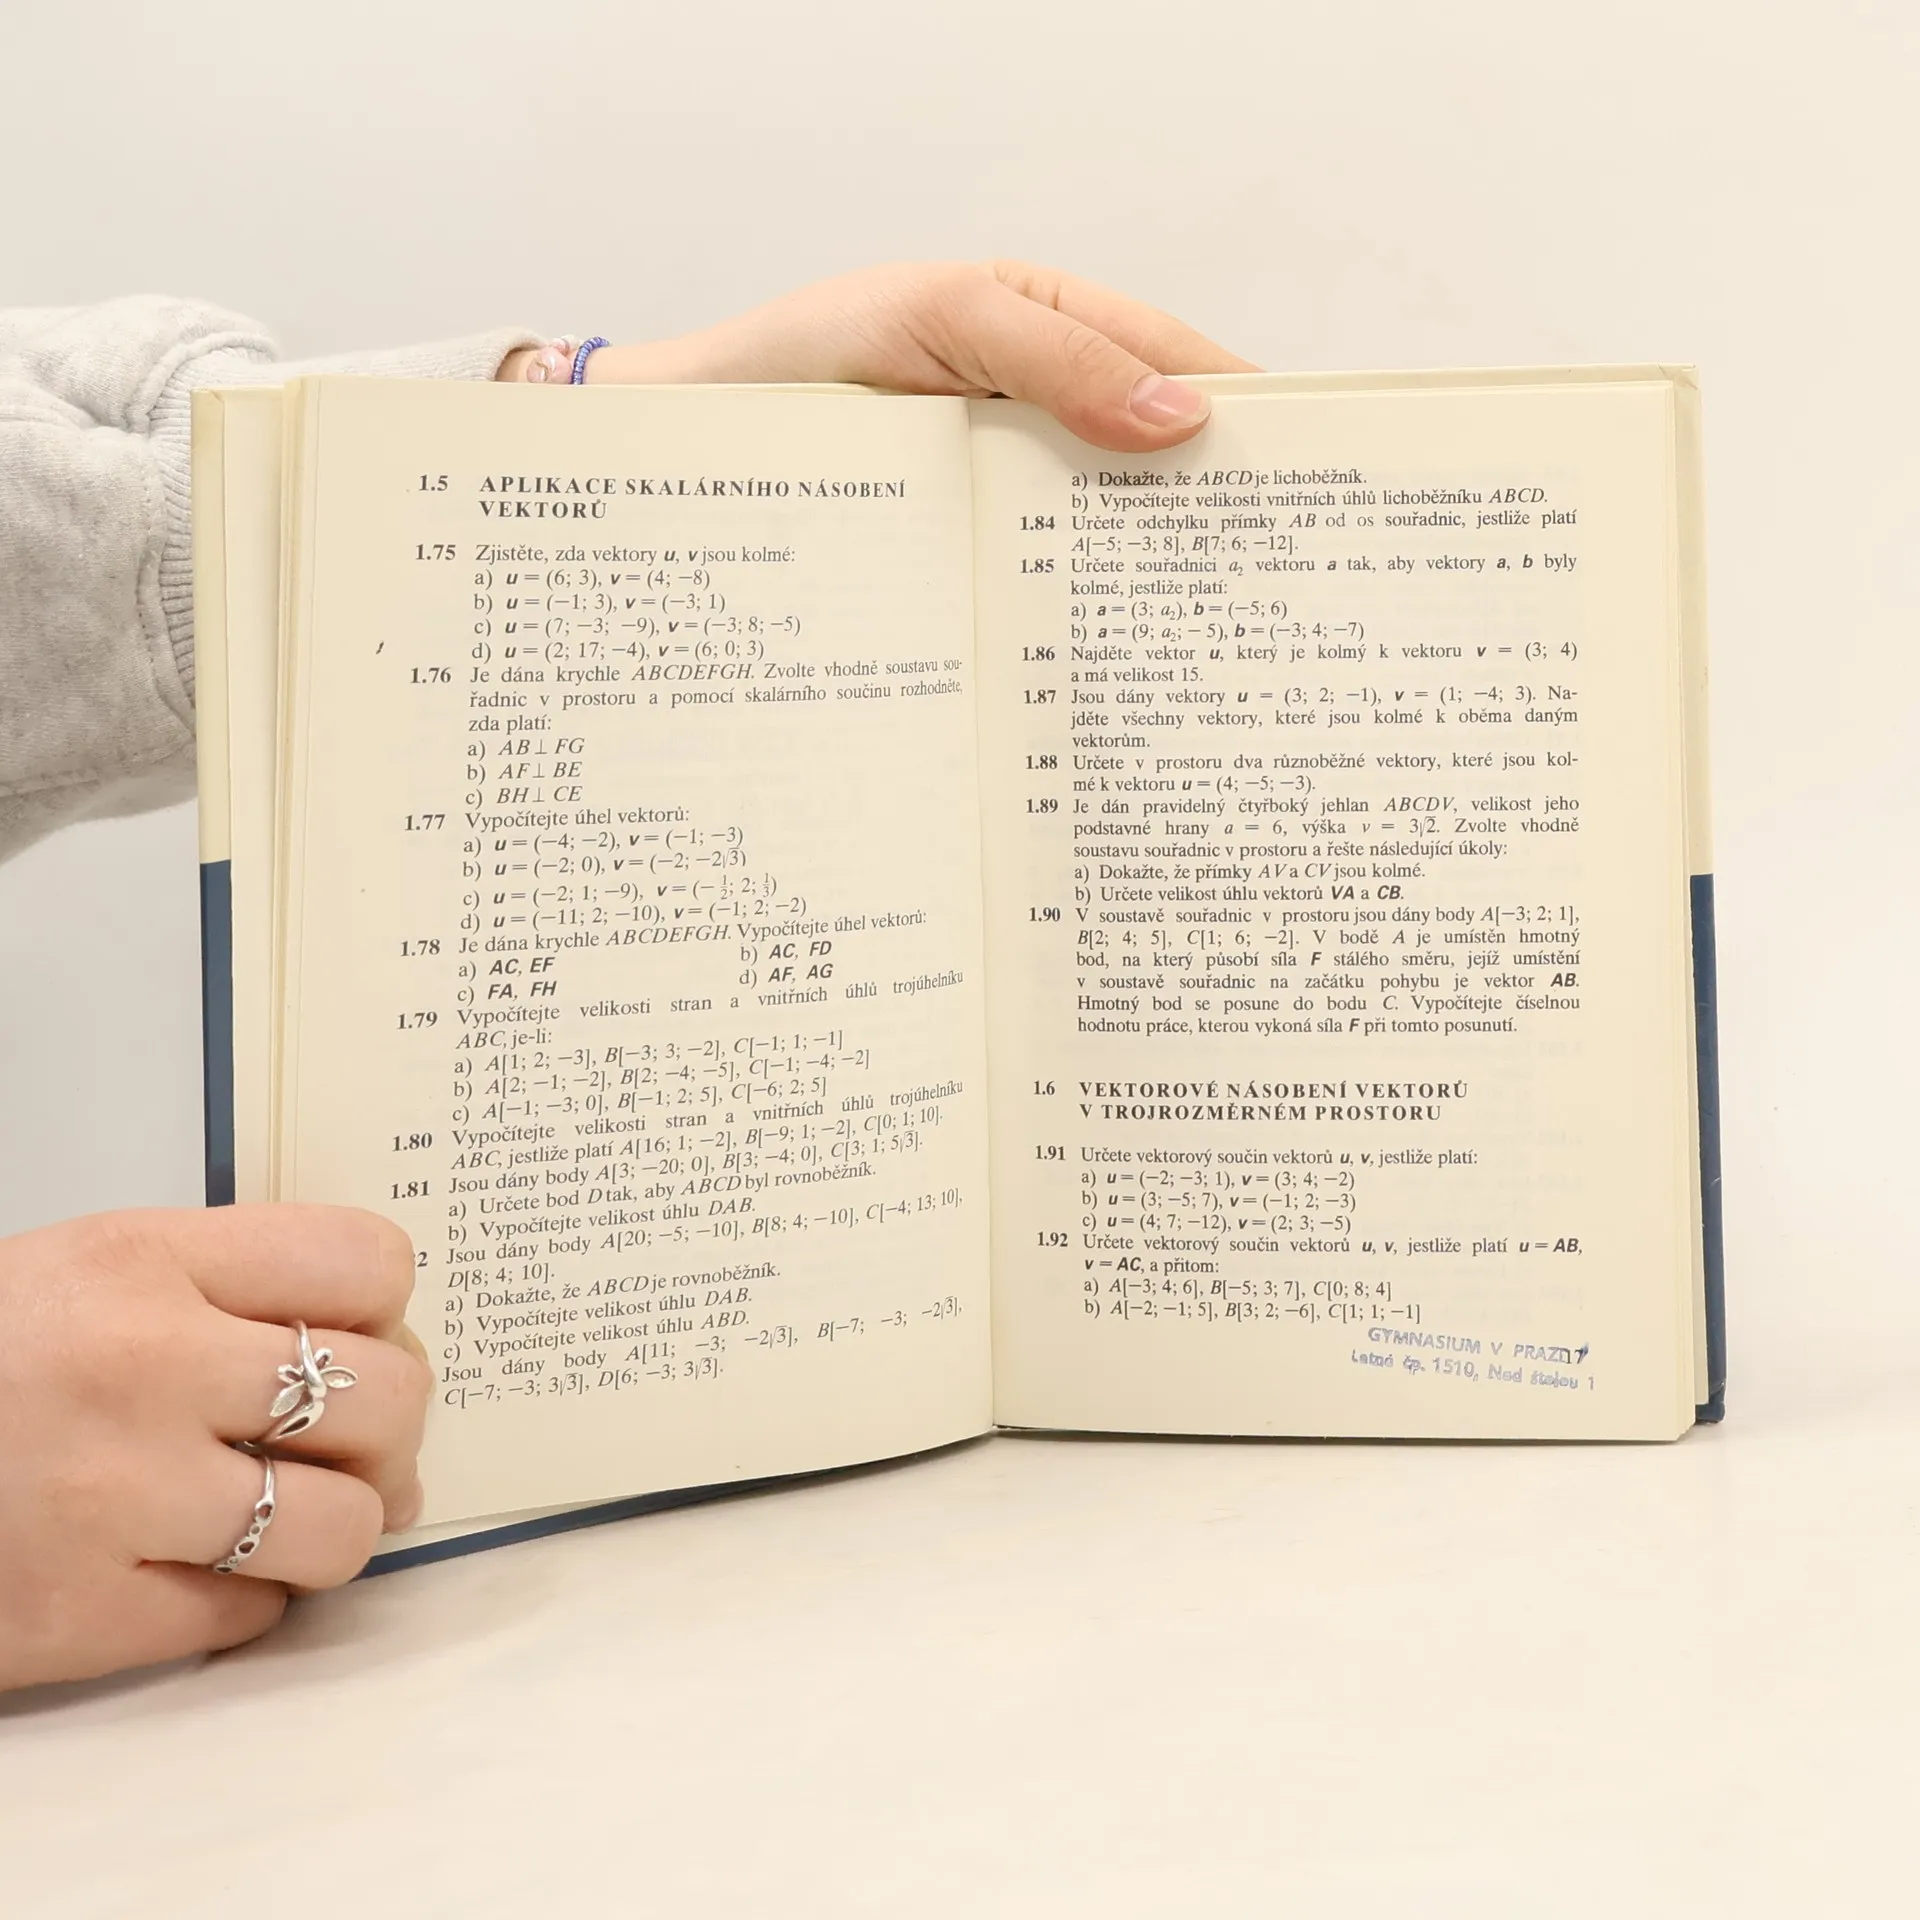 1.5 APLIKACE SKALÁRNÍHO NÁSOBENÍ
VEKTORŮ
1.75 Zjistěte, zda vektory u, v jsou kolmé:
a) u = (6; 3), v = (4; −8)
b) u = (−1; 3), v = (−3; 1)
c) u = (7; −3; −9), v = (−3; 8; −5)
d) u = (2; 17; −4), v = (6; 0; 3)
1.76 Je dána krychle ABCDEFGH. Zvolte vhodně soustavu sou-
řadnic v prostoru a pomocí skalárního součinu rozhodněte,
zda platí:
a) AB ⊥ FG
b) AF ⊥ BE
c) BH ⊥ CE
1.77 Vypočítejte úhel vektorů:
a) u = (−4; −2), v = (−1; −3)
b) u = (−2; 0), v = (−2; −2√3)
c) u = (−2; 1; −9), v = (−1/2; 2; 1/3)
d) u = (−11; 2; −10), v = (−1; 2; −2)
1.78 Je dána krychle ABCDEFGH. Vypočítejte úhel vektorů:
a) AC, EF b) AC, FD
c) FA, FH d) AF, AG
1.79 Vypočítejte velikosti stran a vnitřních úhlů trojúhelníku
ABC, je-li:
a) A[1; 2; −3], B[−3; 3; −2], C[−1; 1; −1]
b) A[2; −1; −2], B[2; −4; −5], C[−1; −4; −2]
c) A[−1; −3; 0], B[−1; 2; 5], C[−6; 2; 5]
1.80 Vypočítejte velikosti stran a vnitřních úhlů trojúhelníku
ABC, jestliže platí A[16; 1; −2], B[−9; 1; −2], C[0; 1; 10].
1.81 Jsou dány body A[3; −20; 0], B[3; −4; 0], C[3; 1; 5√3].
a) Určete bod D tak, aby ABCD byl rovnoběžník.
b) Vypočítejte velikost úhlu DAB.
2 Jsou dány body A[20; −5; −10], B[8; 4; −10], C[−4; 13; 10],
D[8; 4; 10].
a) Dokažte, že ABCD je rovnoběžník.
b) Vypočítejte velikost úhlu DAB.
c) Vypočítejte velikost úhlu ABD.
Jsou dány body A[11; −3; −2√3], B[−7; −3; −2√3],
C[−7; −3; 3√3], D[6; −3; 3√3].
a) Dokažte, že ABCD je lichoběžník.
b) Vypočítejte velikosti vnitřních úhlů lichoběžníku ABCD.
1.84 Určete odchylku přímky AB od os souřadnic, jestliže platí
A[−5; −3; 8], B[7; 6; −12].
1.85 Určete souřadnici a₂ vektoru a tak, aby vektory a, b byly
kolmé, jestliže platí:
a) a = (3; a₂), b = (−5; 6)
b) a = (9; a₂; − 5), b = (−3; 4; −7)
1.86 Najděte vektor u, který je kolmý k vektoru v = (3; 4)
a má velikost 15.
1.87 Jsou dány vektory u = (3; 2; −1), v = (1; −4; 3). Na-
jděte všechny vektory, které jsou kolmé k oběma daným
vektorům.
1.88 Určete v prostoru dva různoběžné vektory, které jsou kol-
mé k vektoru u = (4; −5; −3).
1.89 Je dán pravidelný čtyřboký jehlan ABCDV, velikost jeho
podstavné hrany a = 6, výška v = 3√2. Zvolte vhodně
soustavu souřadnic v prostoru a řešte následující úkoly:
a) Dokažte, že přímky AV a CV jsou kolmé.
b) Určete velikost úhlu vektorů VA a CB.
1.90 V soustavě souřadnic v prostoru jsou dány body A[−3; 2; 1],
B[2; 4; 5], C[1; 6; −2]. V bodě A je umístěn hmotný
bod, na který působí síla F stálého směru, jejíž umístění
v soustavě souřadnic na začátku pohybu je vektor AB.
Hmotný bod se posune do bodu C. Vypočítejte číselnou
hodnotu práce, kterou vykoná síla F při tomto posunutí.
1.6 VEKTOROVÉ NÁSOBENÍ VEKTORŮ
V TROJROZMĚRNÉM PROSTORU
1.91 Určete vektorový součin vektorů u, v, jestliže platí:
a) u = (−2; −3; 1), v = (3; 4; −2)
b) u = (3; −5; 7), v = (−1; 2; −3)
c) u = (4; 7; −12), v = (2; 3; −5)
1.92 Určete vektorový součin vektorů u, v, jestliže platí u = AB,
v = AC, a přitom:
a) A[−3; 4; 6], B[−5; 3; 7], C[0; 8; 4]
b) A[−2; −1; 5], B[3; 2; −6], C[1; 1; −1]
GYMNASIUM V PRAZE 17
Letná čp. 1510, Nad štolou 1